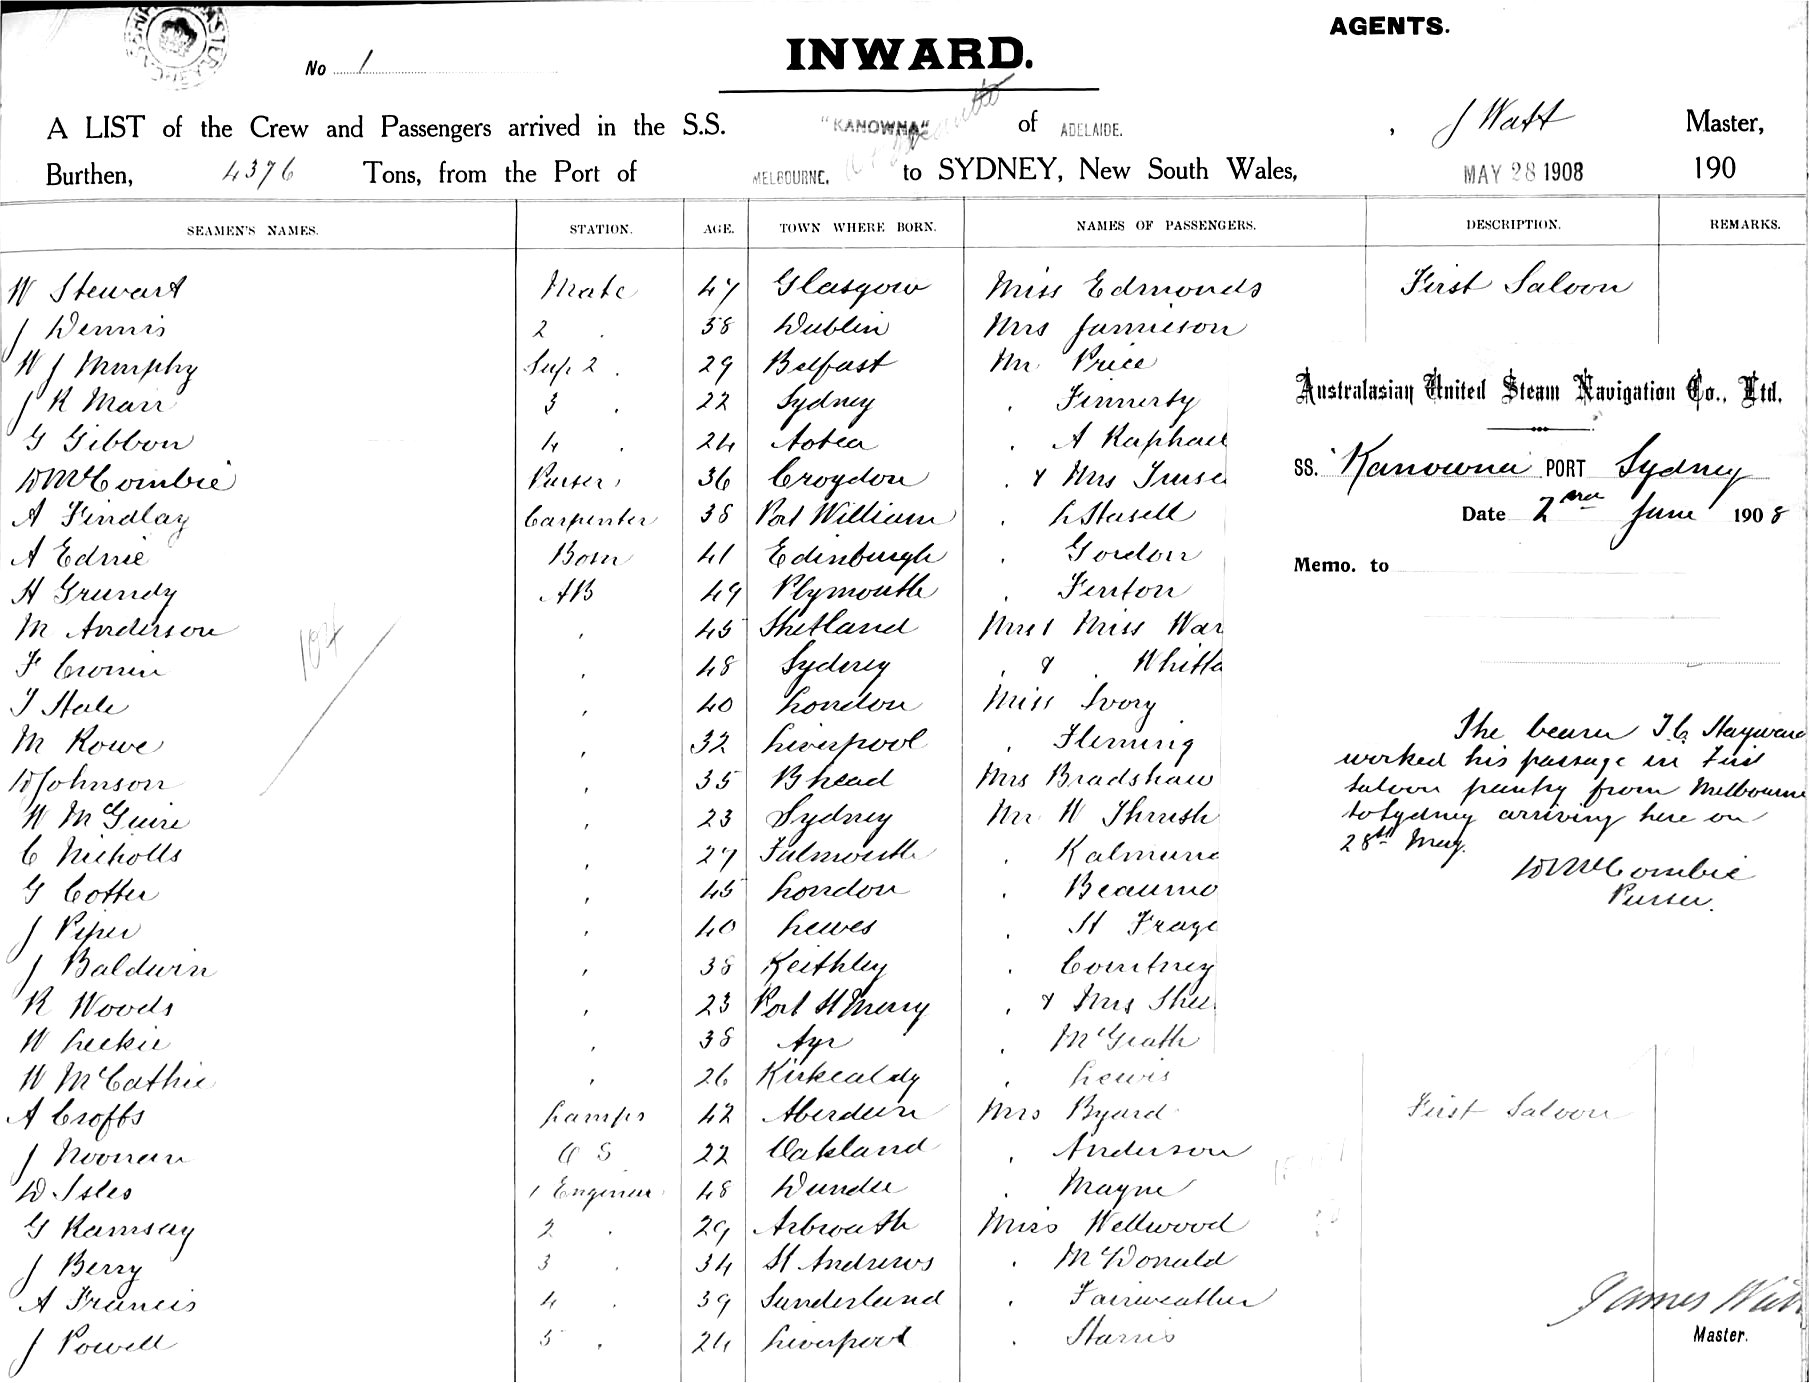 AGENTS.
No 1
INWARD.
A LIST of the Crew and Passengers arrived in the S.S. "KANOWNA" of ADELAIDE. , J Watt Master,
Burthen, 4376 Tons, from the Port of MELBOURNE. to SYDNEY, New South Wales, MAY 28 1908 190
SEAMEN'S NAMES. STATION. AGE. TOWN WHERE BORN. NAMES OF PASSENGERS. DESCRIPTION. REMARKS.
W Stewart Mate 47 Glasgow Miss Edmonds First Saloon
J Dennis 2 . 38 Dublin Mrs Jamieson
W J Murphy Sup 2 . 29 Belfast Mr Price
J R Marr 3 . 22 Sydney . Finnerty
G Gibbon 4 . 24 Aotea . A Raphael
D McCombie Purser 36 Croydon . & Mrs
A Findlay Carpenter 38 Port William .
A Ednie Bosn 41 Edinburgh . Gordon
H Grundy AB 49 Plymouth . Fenton
M Anderson , 45 Shetland Mrs & Miss War
F Cronin , 48 Sydney . & . Whitta
T Hale , 40 London Miss Ivory
M Rowe , 32 Liverpool . Fleming
D Johnson , 35 B head Mrs Bradshaw
W McGuire , 23 Sydney Mr W Thrush
C Nicholls , 27 Falmouth .
G Cotter , 45 London . Beaumo
J Piper , 40 Lewes . H
J Baldwin , 38 Keithley . Courtney
R Woods , 23 Port St Merry . & Mrs
W Leckie , 38 Ayr . McGrath
W McCathie , 26 Kirkcaldy . Lewis
A Croffts Lamps 42 Aberdeen Mrs Byard First Saloon
J Noonan O S 22 Oakland . Anderson
D Isles 1 Engineer 48 Dundee . Mayne
G Ramsay 2 . 29 Arbroath Miss Wellwood
J Berry 3 . 34 St Andrews . McDonald
A Francis 4 . 39 Sunderland . Fairweather
J Powell 5 . 24 Liverpool . Harris
Australasian United Steam Navigation Co., Ltd.
SS. Kanowna PORT Sydney
Date 2nd June 1908
Memo. to
The bearer T. C. Hayward
worked his passage in First
saloon pantry from Melbourne
to Sydney arriving here on
28th May.
D McCombie
Purser.
James Watt
Master.
104